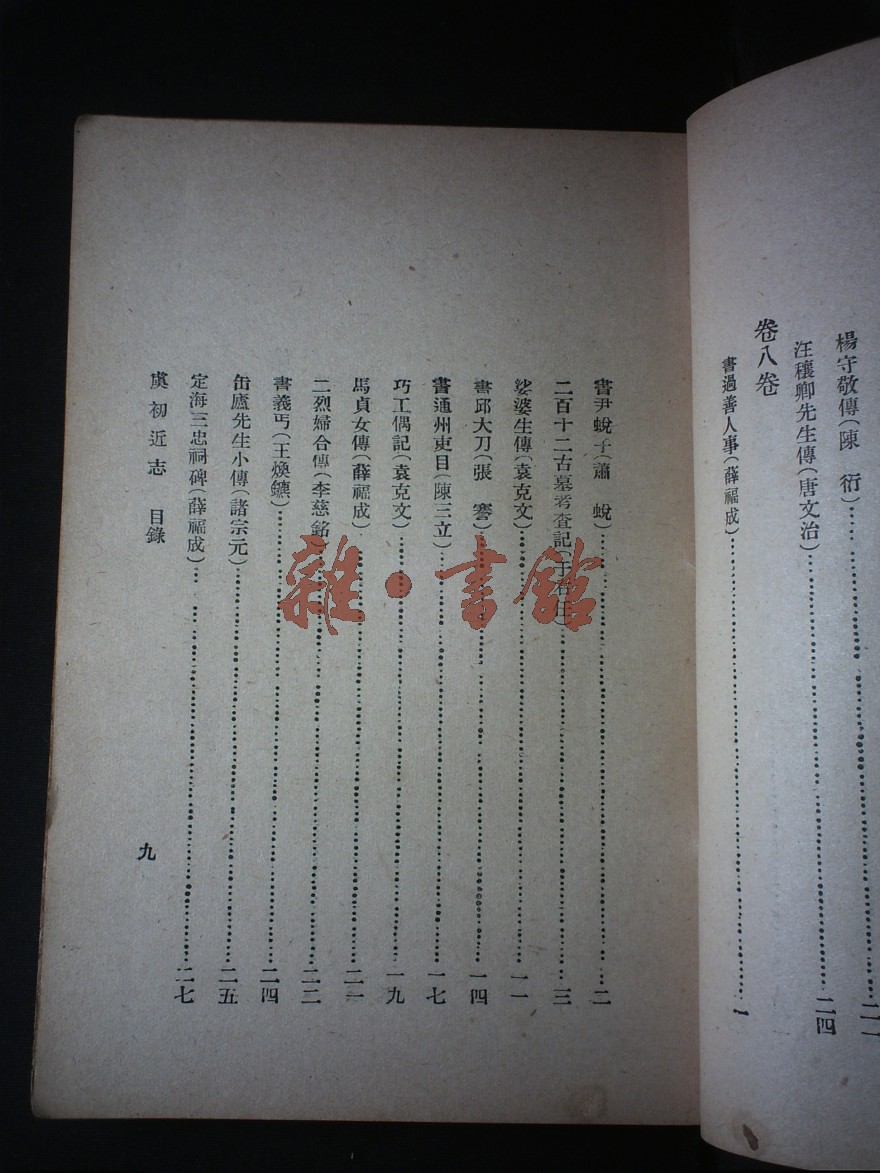 楊守敬傳(陳 衍)……二一
汪穰卿先生傳(唐文治)……二四
卷八卷
書過善人事(薛福成)……一
書尹蛻子(蕭 蛻)……二
二百十二古墓考查記(于右任)……三
娑婆生傳(袁克文)……一一
書邱大刀(張 謇)……一四
書通州吏目(陳三立)……一七
巧工偶記(袁克文)……一九
馬貞女傳(薛福成)……二一
二烈婦合傳(李慈銘)……二二
書義丐(王煥鑣)……二四
缶廬先生小傳(諸宗元)……二五
定海三忠祠碑(薛福成)……二七
虞初近志 目錄
九
雜·書館